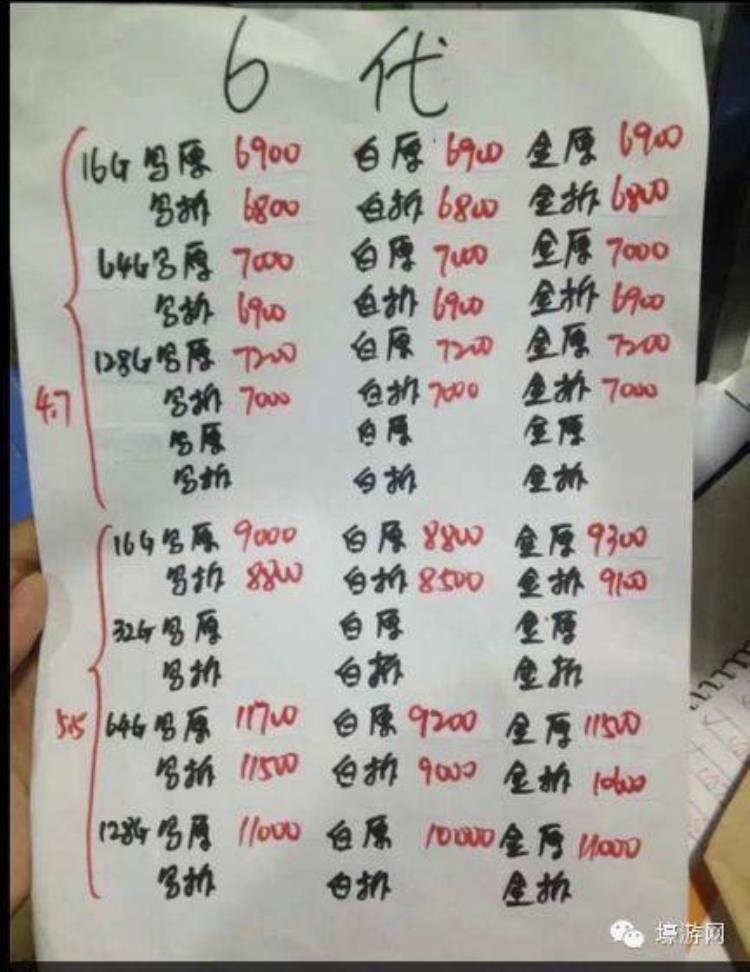 6 代
16G 乌原 6900 白原 6900 金原 6900
乌拆 6800 白拆 6800 金拆 6800
64G 乌原 7000 白原 7000 金原 7000
乌拆 6900 白拆 6900 金拆 6900
128G 乌原 7200 白原 7200 金原 7200
4.7 乌拆 7000 白拆 7000 金拆 7000
乌原 白原 金原
乌拆 白拆 金拆
16G 乌原 9000 白原 8800 金原 9300
乌拆 8800 白拆 8500 金拆 9100
32G 乌原 白原 金原
乌拆 白拆 金拆
5.5 64G 乌原 11700 白原 9200 金原 11500
乌拆 11500 白拆 9000 金拆 10600
128G 乌原 11000 白原 10000 金原 11000
乌拆 白拆 金拆
壕游网